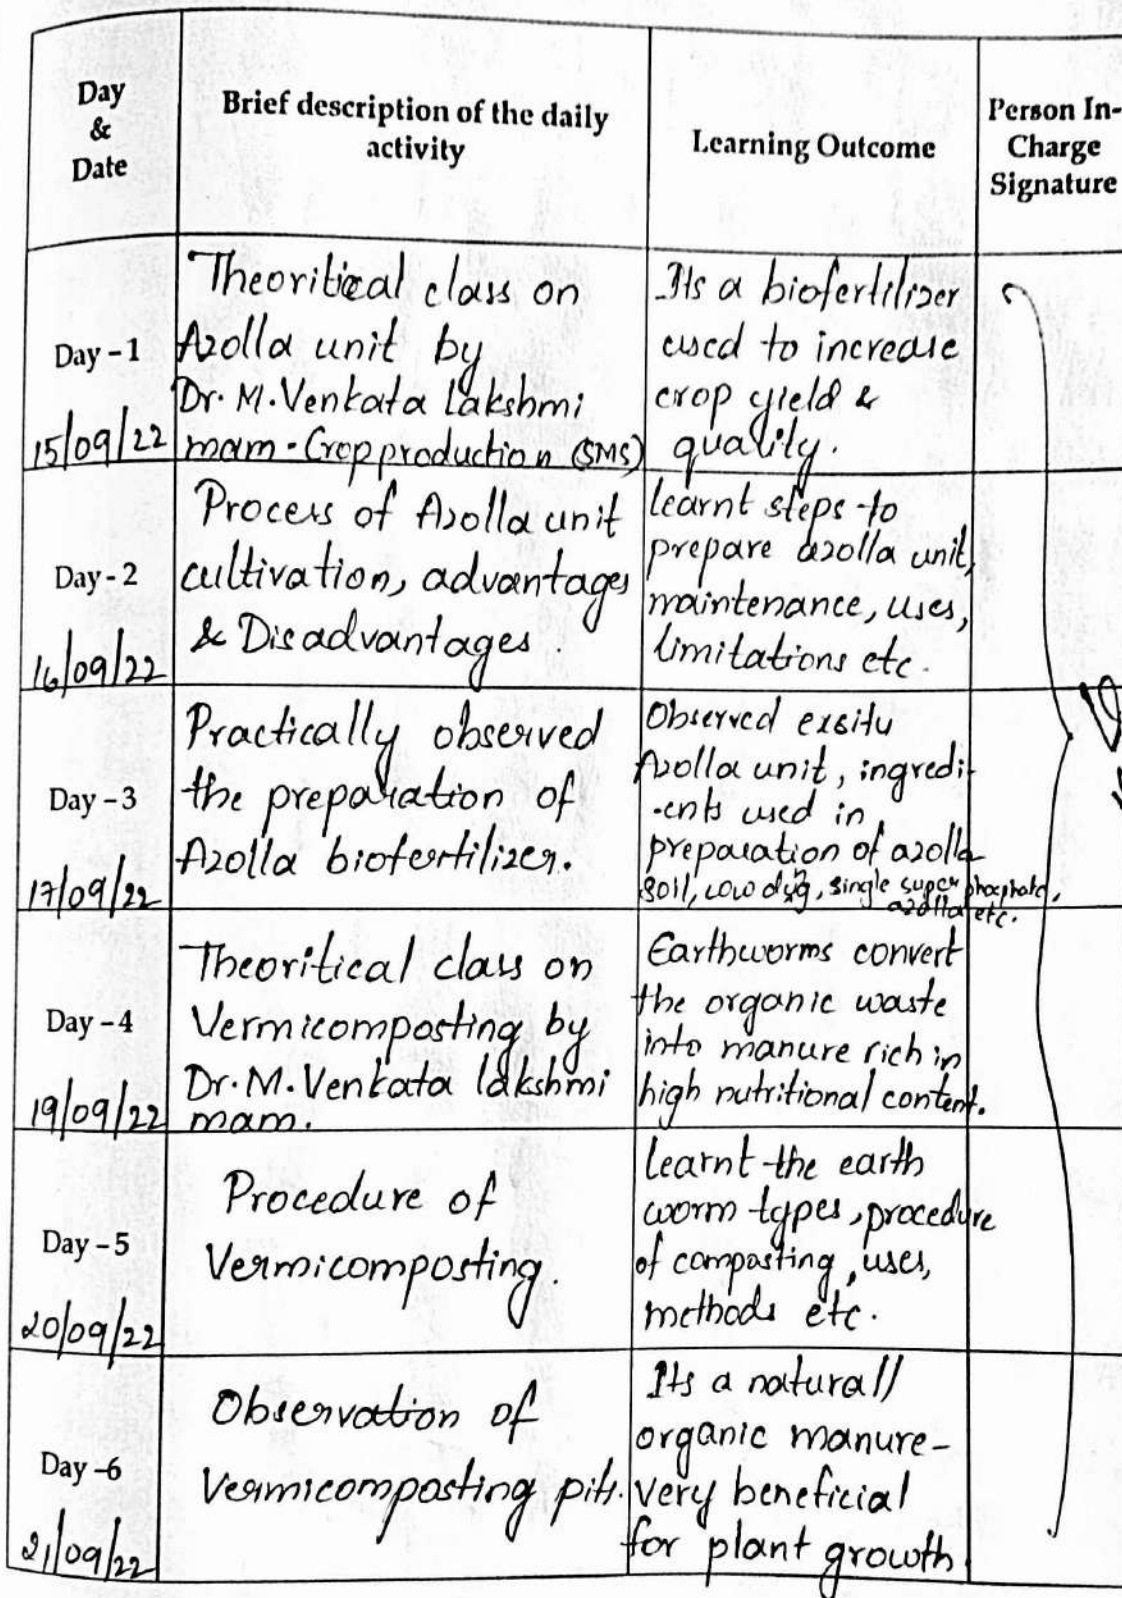 Day
&
Date
Brief description of the daily
activity
Learning Outcome
Person In-
Charge
Signature
Day - 1
15/09/22
Theoritical class on
Azolla unit by
Dr. M. Venkata lakshmi
mam - Crop production (SMS)
Its a biofertilizer
used to increase
crop yield &
quality.
Day - 2
16/09/22
Process of Azolla unit
cultivation, advantages
& Disadvantages.
learnt steps to
prepare azolla unit,
maintenance, uses,
limitations etc.
Day - 3
17/09/22
Practically observed
the preparation of
Azolla biofertilizer.
Observed exsitu
Azolla unit, ingredi-
-ents used in
preparation of azolla
soil, cow dug, single super phosphate,
azolla etc.
Day - 4
19/09/22
Theoritical class on
Vermicomposting by
Dr. M. Venkata lakshmi
mam.
Earthworms convert
the organic waste
into manure rich in
high nutritional content.
Day - 5
20/09/22
Procedure of
Vermicomposting.
learnt the earth
worm types, procedure
of composting, uses,
methods etc.
Day -6
21/09/22
Observation of
Vermicomposting pits.
Its a natural/
organic manure-
very beneficial
for plant growth.